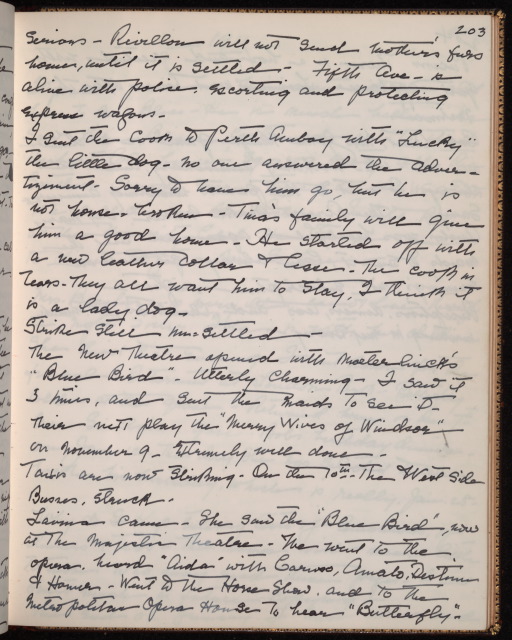 203
serious - Revillon will not send Mother's furs
home, until it is settled - Fifth Ave - is
alive with police, escorting and protecting
express wagons -
I sent the cook to Perth Amboy with "Lucky"
the little dog - no one answered the adver-
tizement - Sorry to have him go, but he is
not house-broken - Tina's family will give
him a good home - He started off with
a new leather collar & lease - The cook in
tears - They all want him to stay, I think it
is a lady dog -
Strike still un-settled -
The New Theatre opened with Maeterlinck's
"Blue Bird" - Utterly charming - I saw it
3 times, and sent the maids to see it -
Their next play the "Merry Wives of Windsor"
on November 9 - Extremely well done -
Taxis are now striking - On the 10th - The West Side
Busses, struck -
Lavinia came - She saw the "Blue Bird", now
at the Majestic Theatre - We went to the
opera, heard "Aida" with Caruso, Amato, Destinn
& Homer - Went to the Horse Show, and to the
Metropolitan Opera House to hear "Butterfly" -